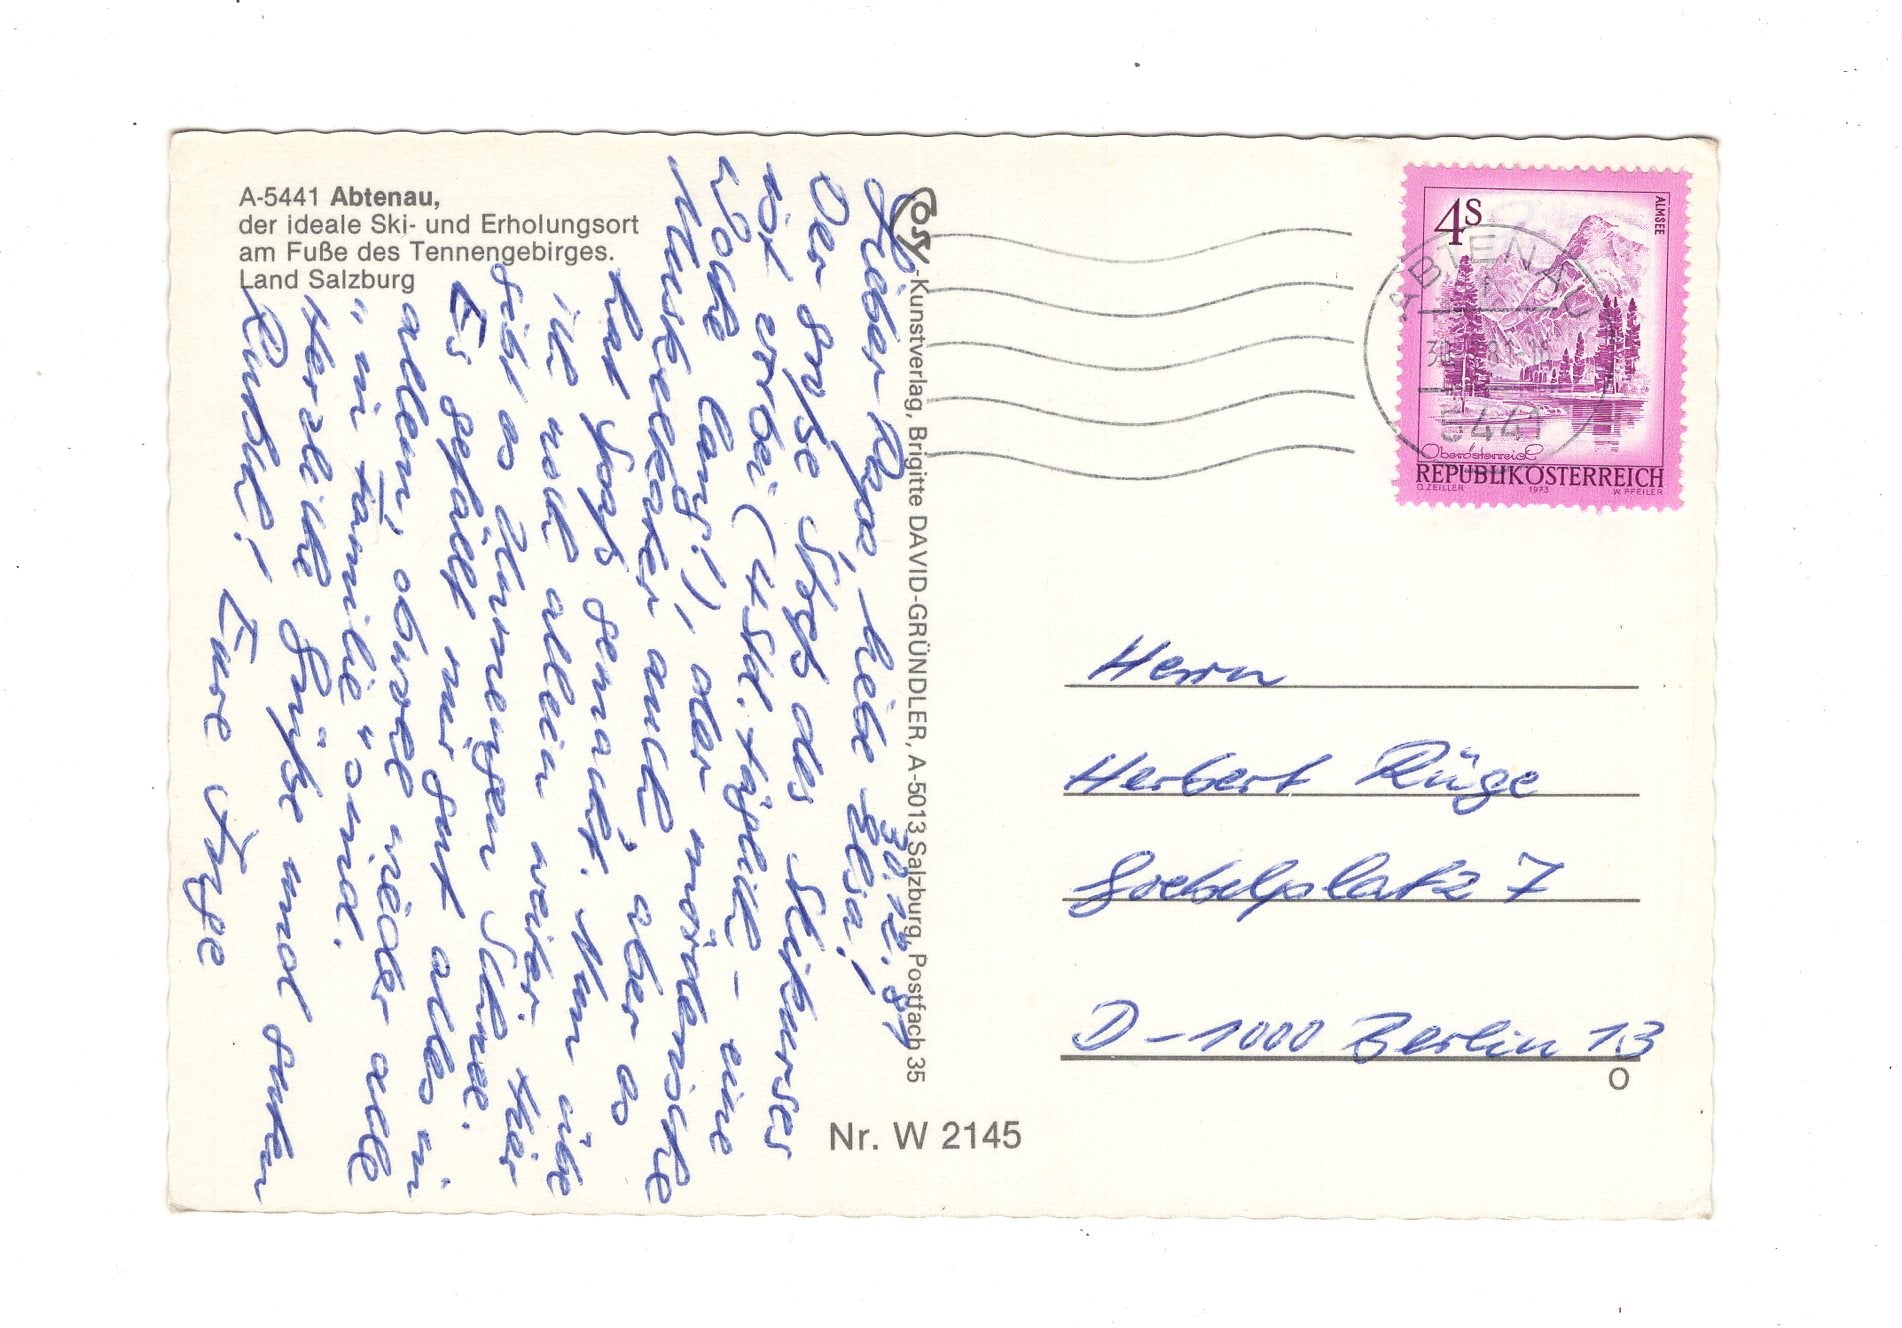 A-5441 Abtenau,
der ideale Ski- und Erholungsort
am Fuße des Tennengebirges.
Land Salzburg
30.12.81
Lieber Papa, liebe Elsa!
Der große Streß des Skikurses
ist vorbei (4 Std. täglich - eine
Woche lang!), der mörderische
Muskelkater auch, aber es
hat Spaß gemacht. Nun übe
ich noch allein weiter. Hier
gibt es Unmengen Schnee.
Es gefällt mir gut alles in
allem, obwohl wieder alle
"in Familie" sind.
Herzliche Grüße und guten
Rutsch! Eure Inge
Cosy-Kunstverlag, Brigitte DAVID-GRÜNDLER, A-5013 Salzburg, Postfach 35
Nr. W 2145
4S
ALMSEE
Oberösterreich
REPUBLIK ÖSTERREICH
O. ZEILLER 1973 W. PFEILER
ABTENAU
5441
Herrn
Herbert Rüge
Goebelplatz 7
D-1000 Berlin 13
O